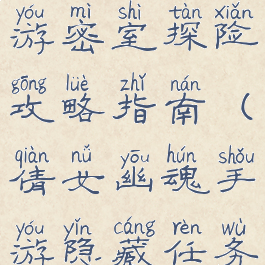 yóu mì shì tàn xiǎn
游密室探险
gōng lüè zhǐ nán
攻略指南（
qiàn nǚ yōu hún shǒu
倩女幽魂手
yóu yǐn cáng rèn wù
游隐藏任务